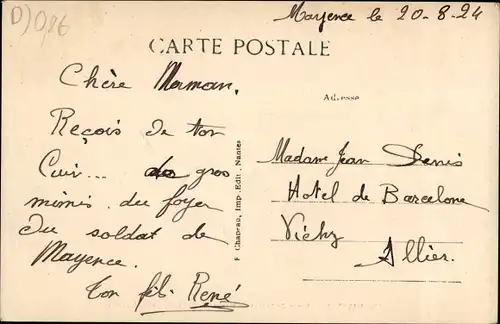 D)0,86
Mayence le 20-8-24
CARTE POSTALE
Chère Maman,
Adresse
Reçois de ton
Cuir... des gros
mimis du foyer
du soldat de
Mayence.
Ton fils René
F. Chapeau, Imp.-Edit., Nantes
Madame Jean Denis
Hotel de Barcelone
Vichy
Allier.